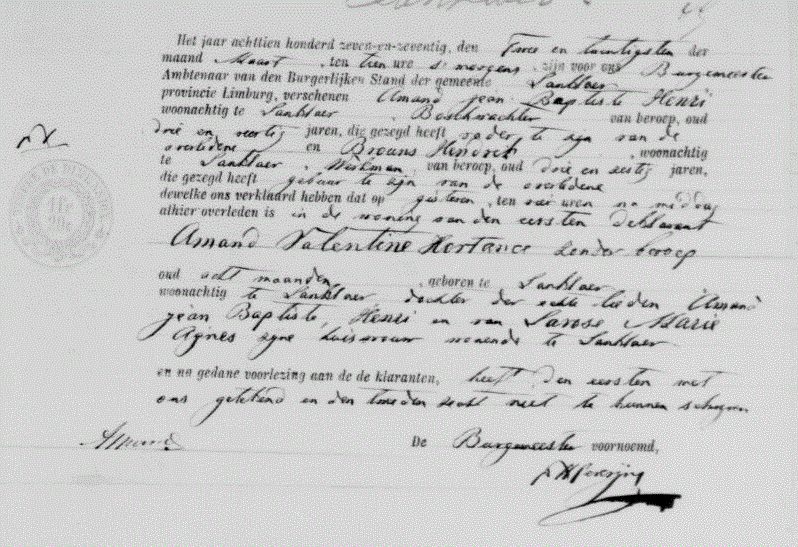 Het jaar achttien honderd zeven-en-zeventig, den Twee en twintigsten der
maand Maart, ten tien ure s'morgens, zijn voor ons Burgemeester
Ambtenaar van den Burgerlijken Stand der gemeente Lanklaer
provincie Limburg, verschenen Amand jean Baptiste Henri
woonachtig te Lanklaer, Boschwachter van beroep, oud
drie en veertig jaren, die gezegd heeft vader te zyn van de
overledene en Brouns Hendrik, woonachtig
te Lanklaer, Werkman, van beroep, oud drie en sestig jaren,
die gezegd heeft gebuur te zyn van de overledene
dewelke ons verklaard hebben dat op gisteren, ten uren na middag
alhier overleden is in de woning van den eersten deklarant
Amand Valentine Hortance zonder beroep
oud acht maanden, geboren te Lanklaer
woonachtig te Lanklaer, dochter der echte lieden Amand
jean Baptiste, Henri en van Larose Marie
Agnes zyne huisvrouw wonende te Lanklaer
en na gedane voorlezing aan de de klaranten, heeft den eersten met
ons geteekend en den tweeden zecht niet te kunnen schryven
Amand
De Burgemeester voornoemd,